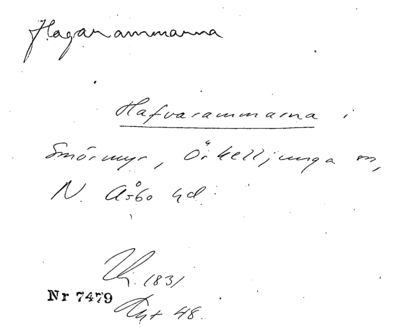 Hagarammarna
Hafvarammarna i
Smörmyr, Örkelljunga sn,
N. Åsbo hd.
1831
Nr 7479
48.